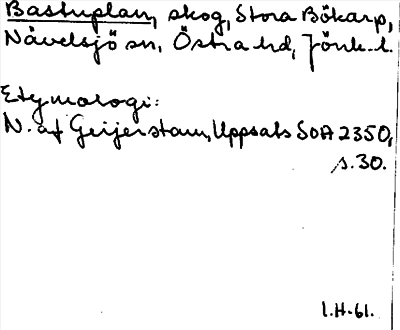 Bastuplan, skog, Stora Bökarp,
Nävelsjö sn, Östra hd, Jönk. l.
Etymologi:
N. af Geijerstam, Uppsats SOA 2350,
s. 30.
I.H-61.